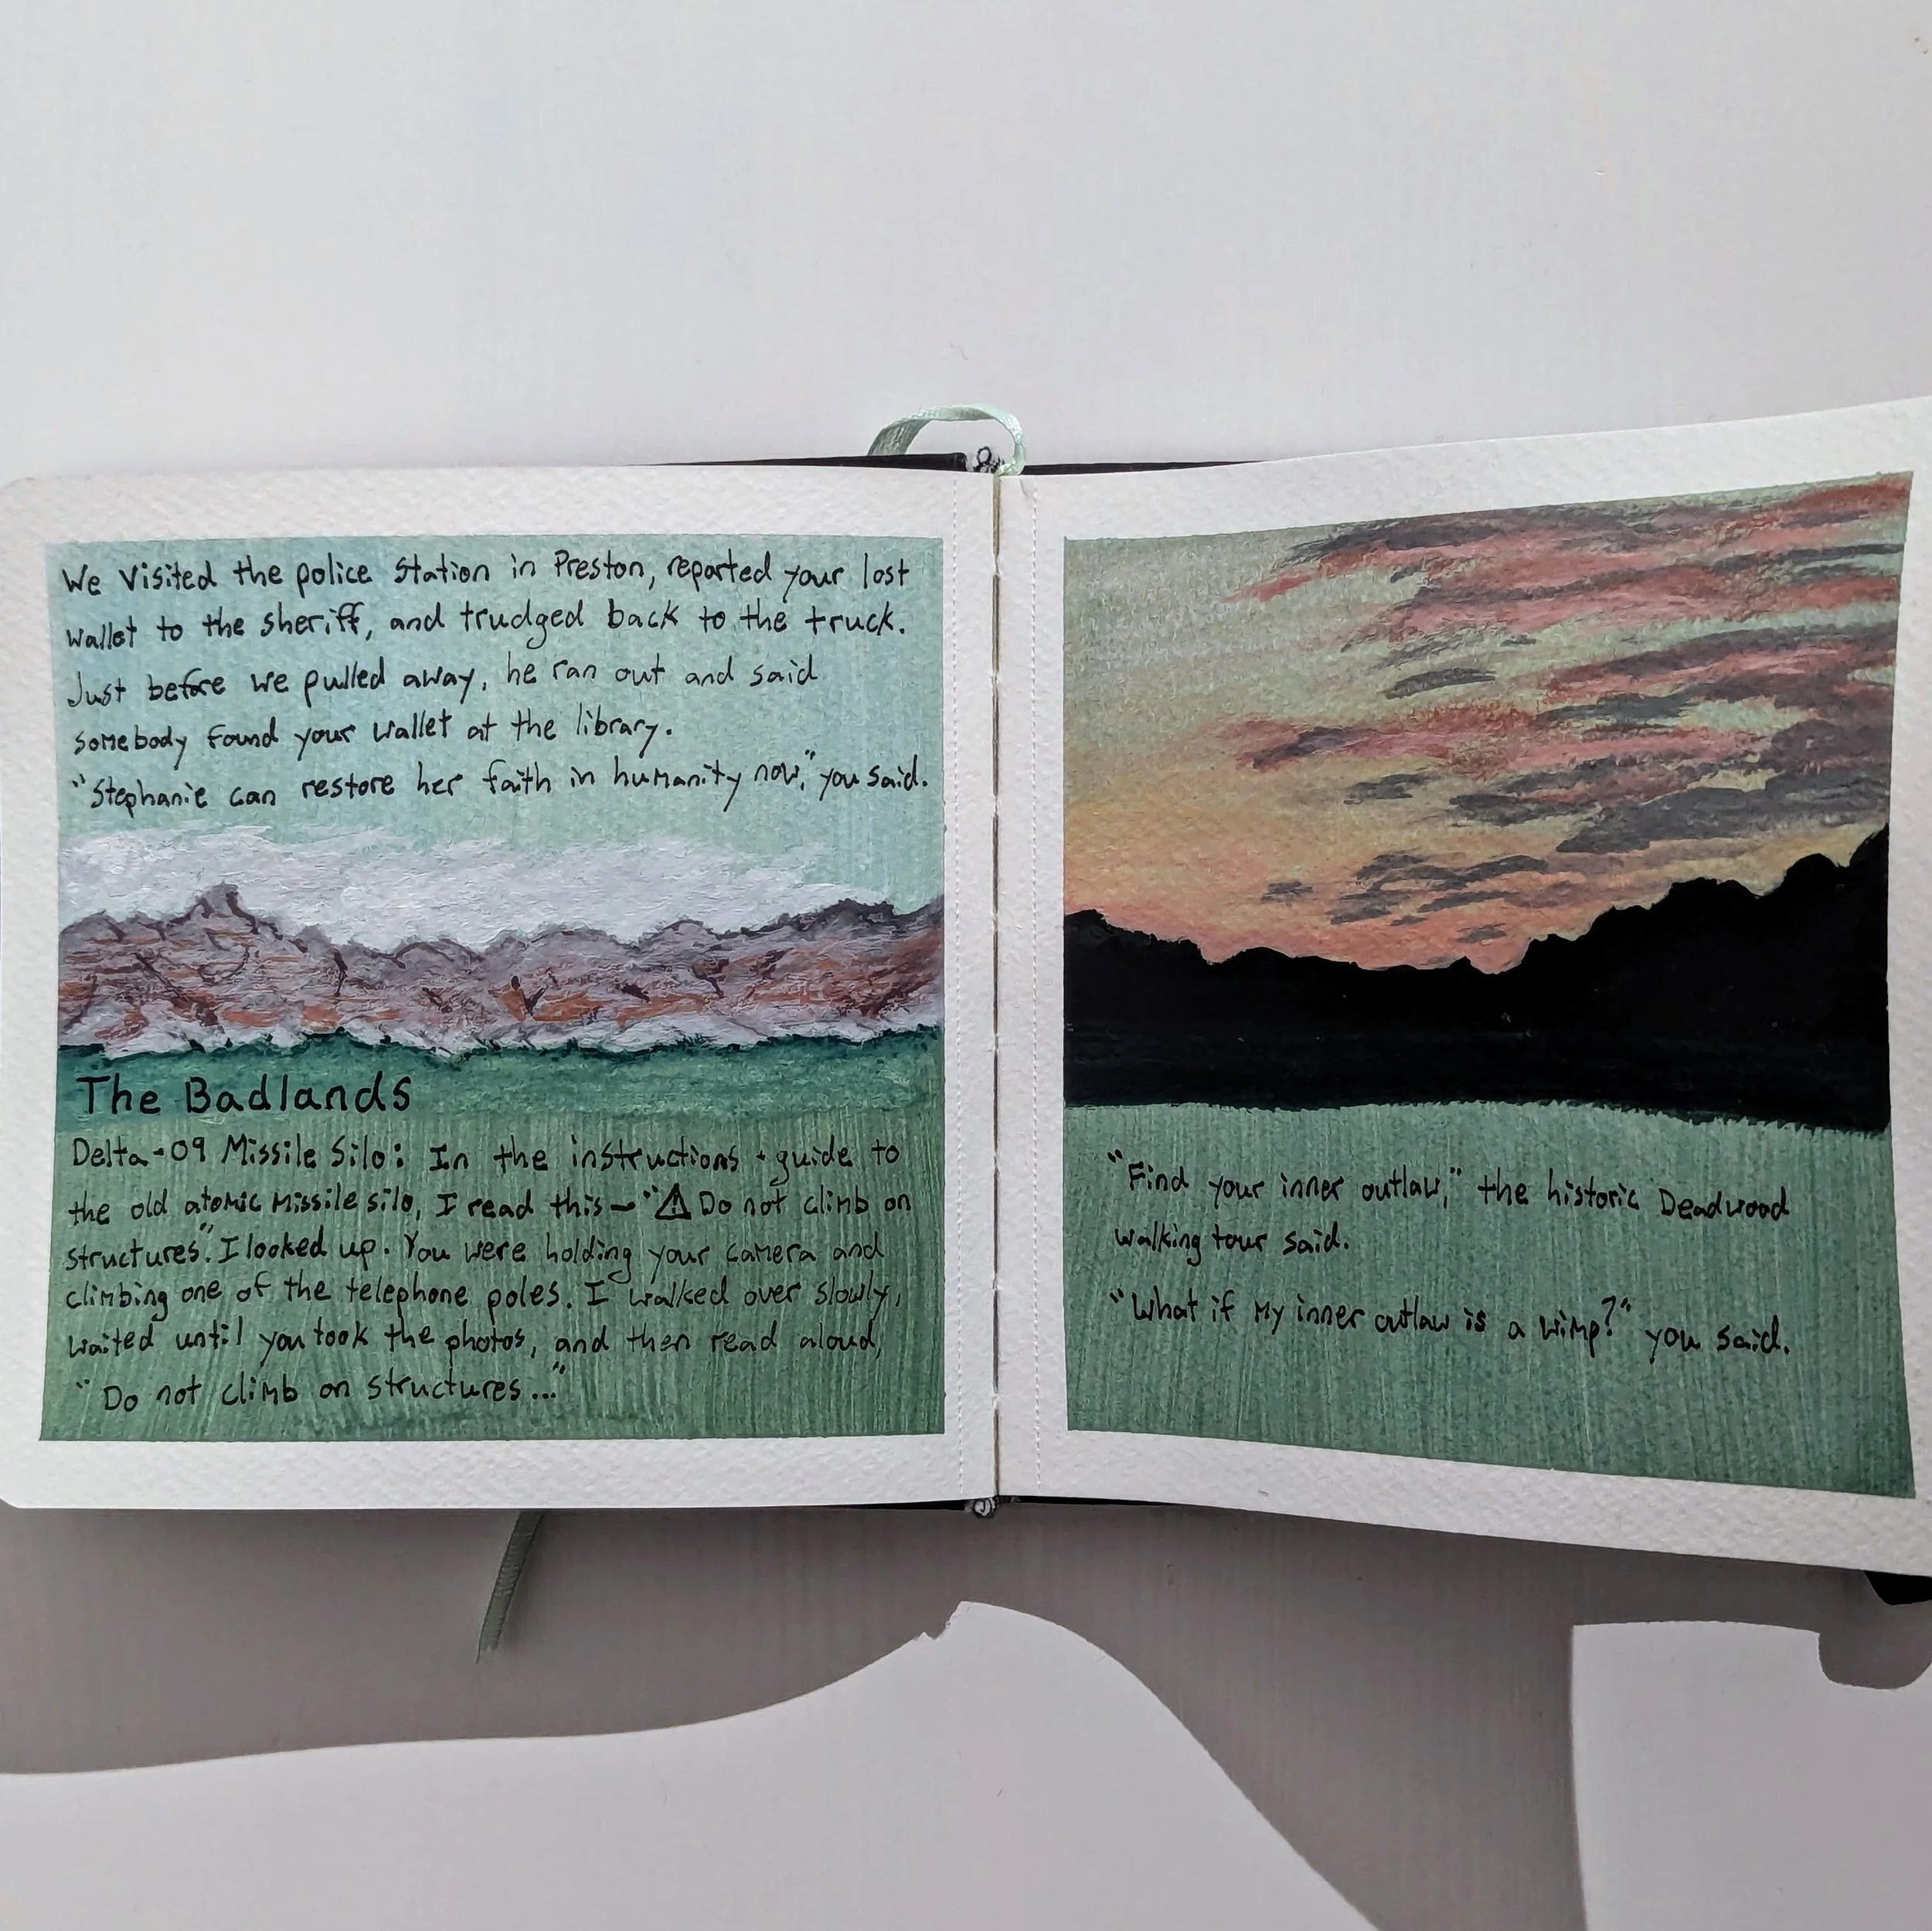 We visited the police station in Preston, reported your lost
wallet to the sheriff, and trudged back to the truck.
Just before we pulled away, he ran out and said
somebody found your wallet at the library.
"Stephanie can restore her faith in humanity now," you said.
The Badlands
Delta-09 Missile Silo: In the instructions + guide to
the old atomic missile silo, I read this — "⚠ Do not climb on
structures." I looked up. You were holding your camera and
climbing one of the telephone poles. I walked over slowly,
waited until you took the photos, and then read aloud,
"Do not climb on structures..."
"Find your inner outlaw," the historic Deadwood
walking tour said.
"What if my inner outlaw is a wimp?" you said.